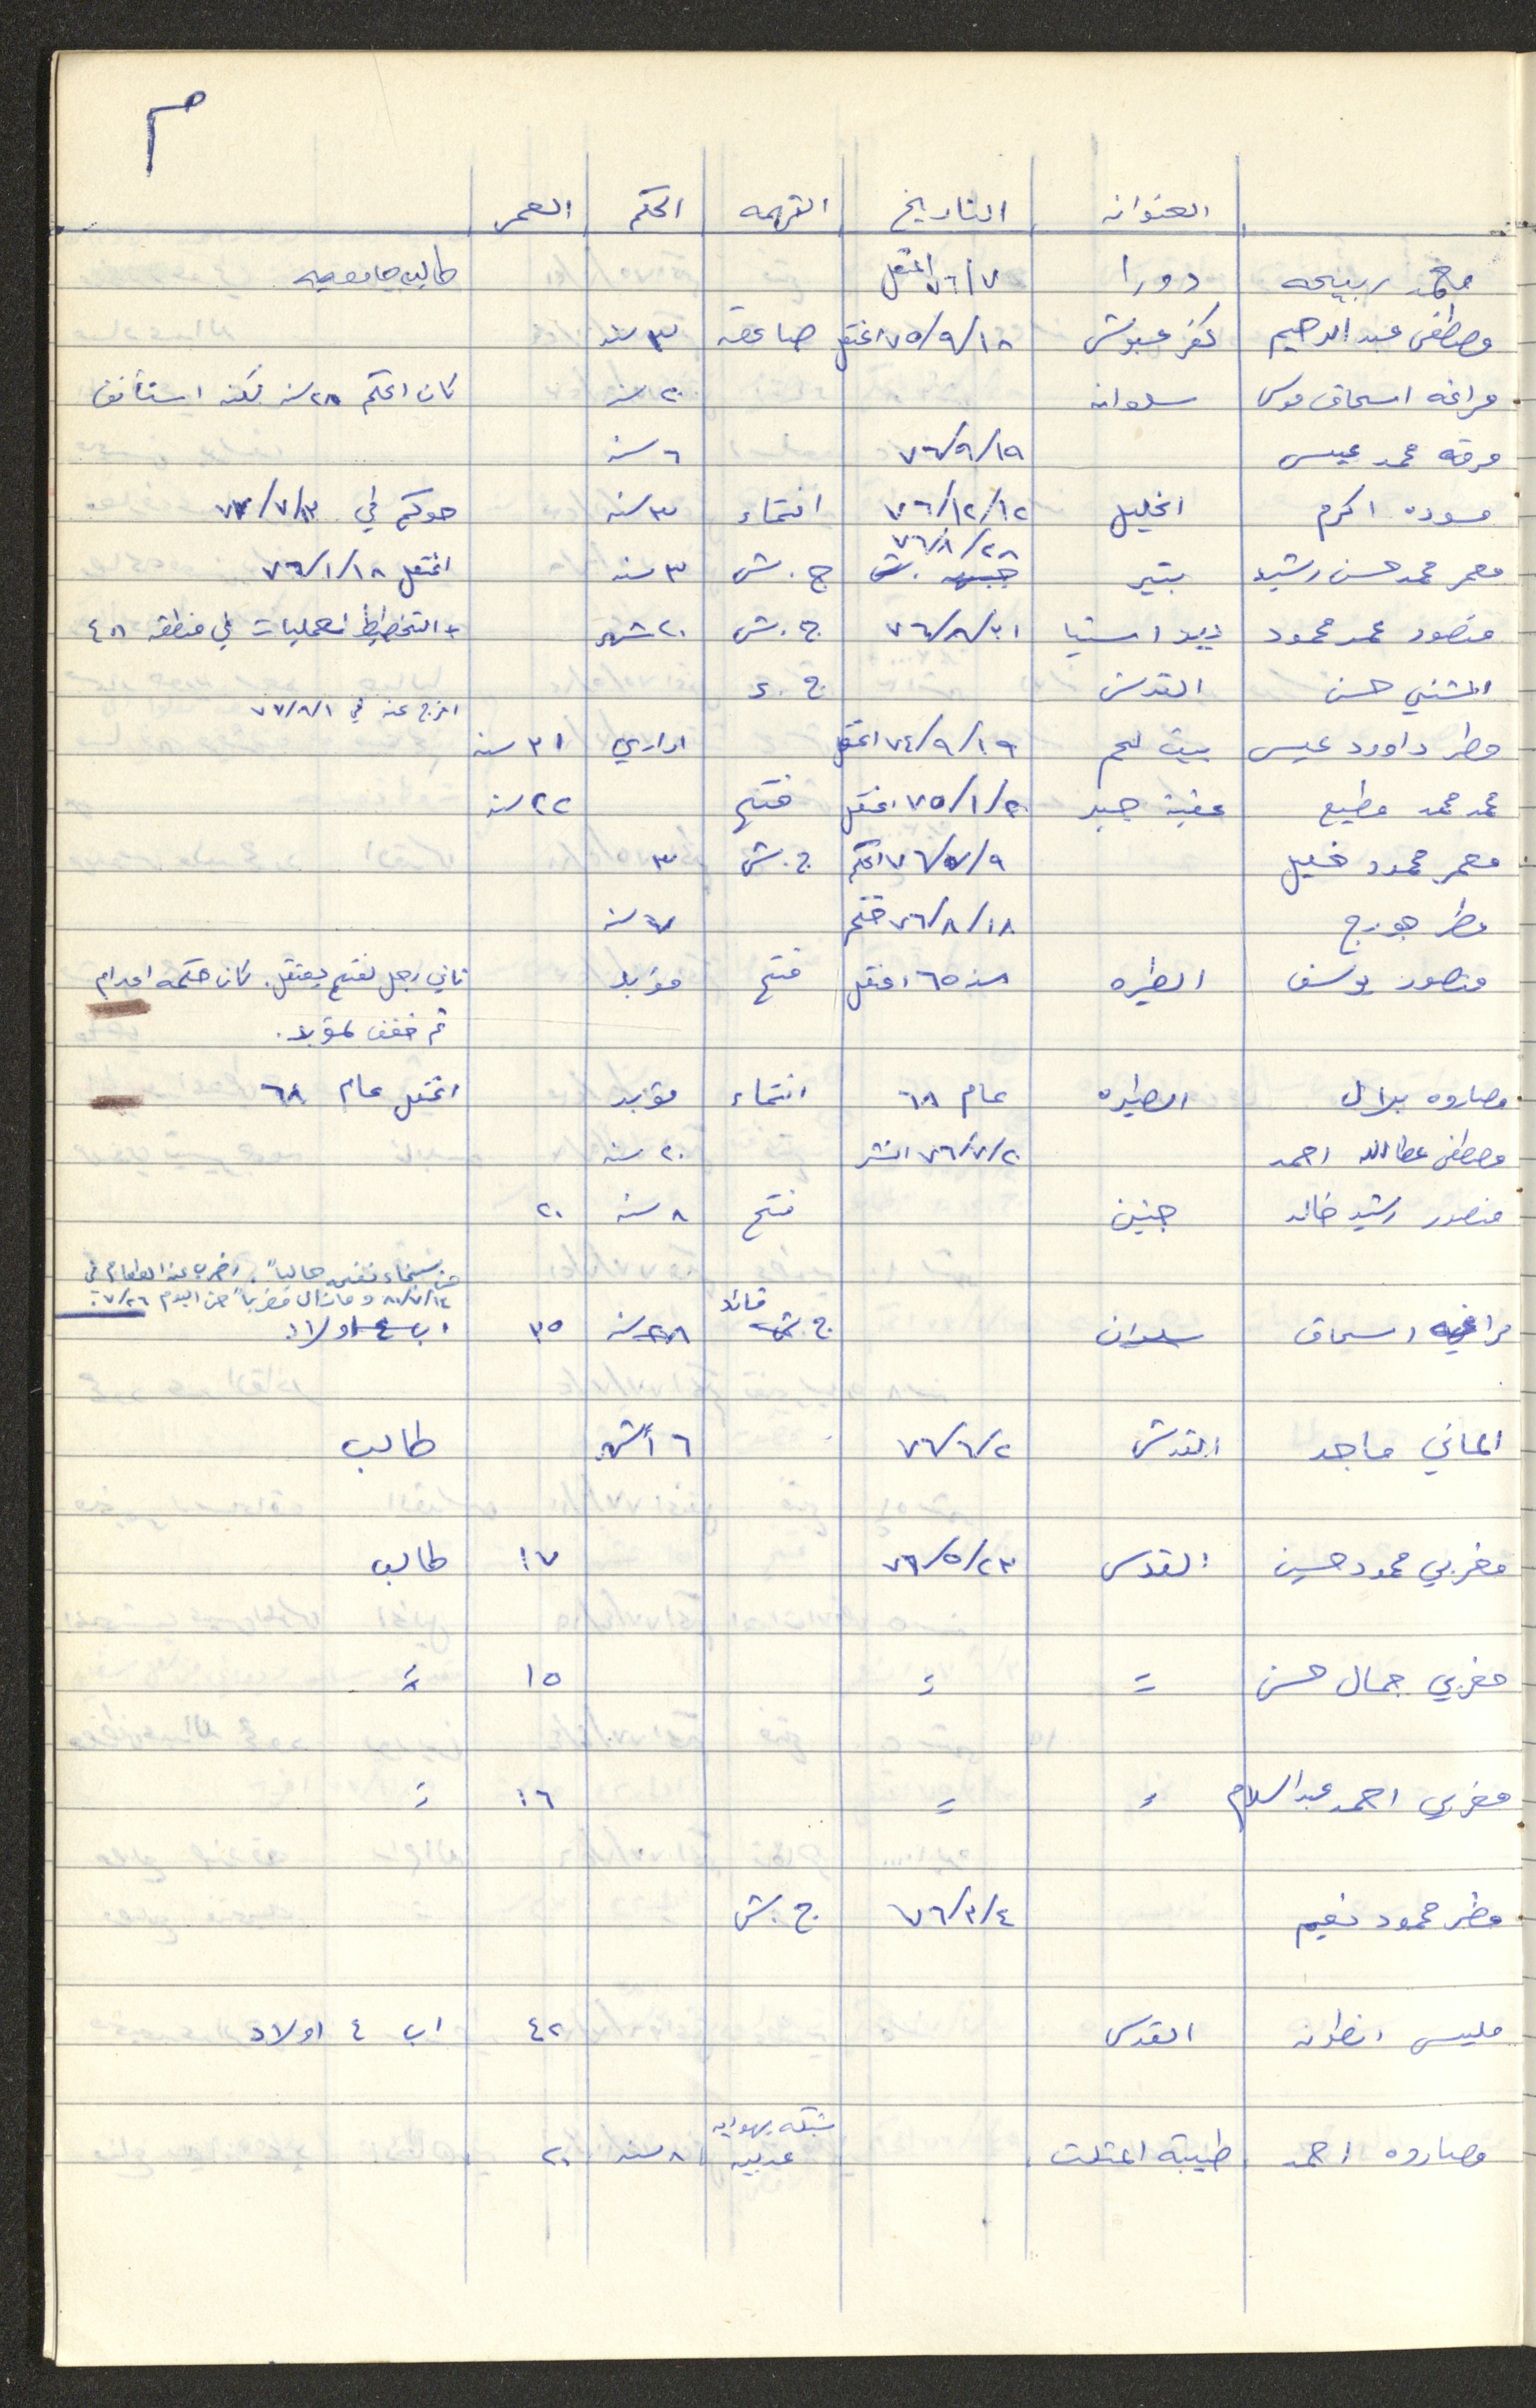 م
العنوان التاريخ التهمه الحكم العمر
محمد ربيحه دورا ٧٦/٧ اعتقل طالب جامعيه
مصطفى عبد الرحيم كفر عبوش ٧٥/٩/١٨ اعتقل صاعقة ٣ سنه
مراغه اسحاق موسى سلوان ٢٠ سنه كان الحكم ٢٨ سنه لكنه استأنف
مرقه محمد عيسى ٧٦/٩/١٩ ٦ سنه
مسوده اكرم الخليل ٧٦/١٢/١٢ انتماء ٣ سنه حوكم في
٧٦/٨/٢
معمر محمد حسن رشيد بتير ج. ش ٣ سنه اعتقل ٧٦/١/١٨
منصور عمر محمود دير استيا ٧٦/٨/٢١ ج. ش ٢٠ شهر + التخطيط لعمليات في منطقة ٤٨
المشني حسن القدس ج. ع
افرج عنه في ٧٧/٨/١
مطر داوود عيسى بيت لحم ٧٤/٩/١٩ اعتقل اداري ٣١ سنه
محمد محمد مطيع عقبة جبر ٧٥/١/٢٠ اعتقل فتح ٢٢ سنه
معمر محمود خليل ٧٦/٧/٩ الحكم ج. ش ٣
مطر جورج ٧٦/٨/١٨ حكم ٧ سنه
منصور يوسف الطيره سنه ٦٥ اعتقل فتح مؤبد ثاني رجل لفتح يعتقل. كان حكمه اعدام
ثم خفف لمؤبد.
مصاروه بلال الطيره عام ٦٨ انتماء مؤبد اعتقل عام ٦٨
مصطفى عطاالله احمد ٧٦/٧/٢٠ ٢٠ سنه
منصور رشيد خالد جنين فتح ٨ سنه ٢٠
سجناء نفحه حاليا". اضرب عن الطعام في
٨٠/٧/١٤ و مازال مضربا" حتى اليوم ٧/٢٦.
مراغه اسحاق سلوان قائد ج. ش ٢٨ سنه ٣٥ اب ٤ اولاد
الماني ماجد القدس ٧٦/٦/٢ ٦ أشهر طالب
مغربي محمود حسين القدس ٧٦/٥/٢٣ ١٧ طالب
مغربي جمال حسن = = ١٥ =
مغربي احمد عبدالسلام = = ١٦ =
مضر محمود نعيم ٧٦/٣/٤ ج. ش
مليس انطون القدس ٤٢ اب ٤ اولاد
شبكه يهوديه
مصاروه احمد طيبة المثلث عربيه ٨ سنه ٢٠